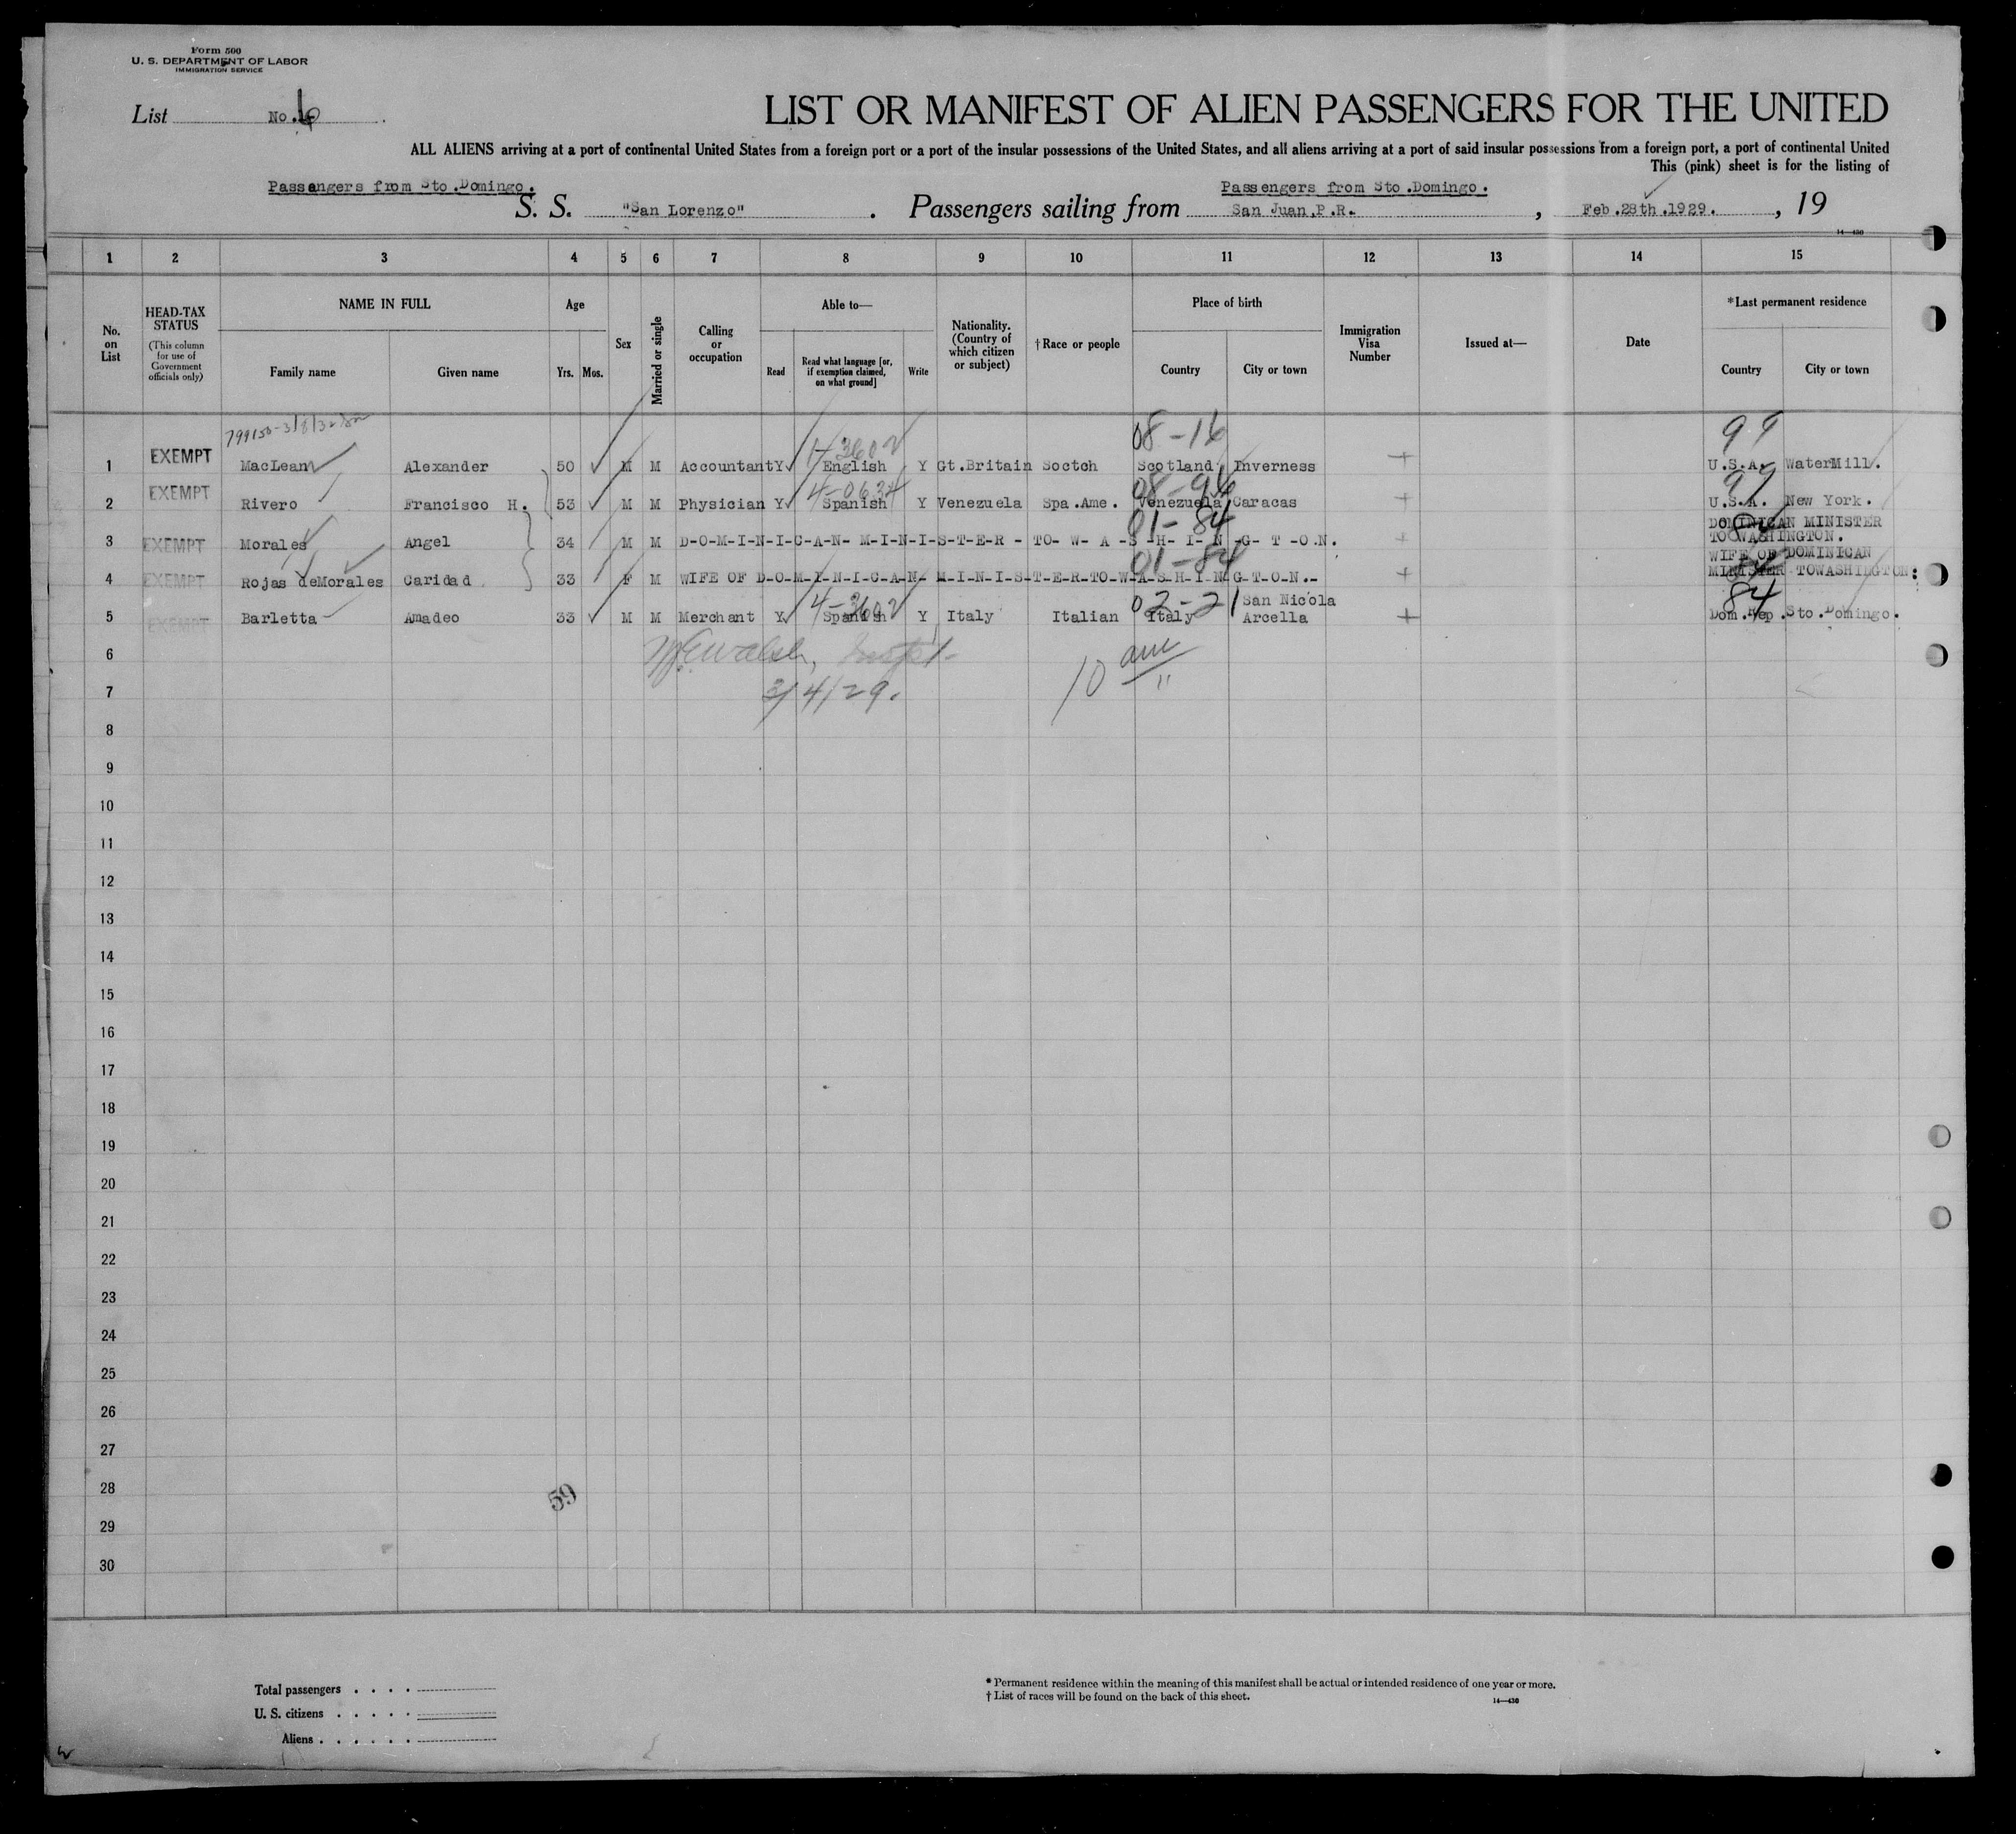 Form 500
U. S. DEPARTMENT OF LABOR
IMMIGRATION SERVICE
List No. 6
LIST OR MANIFEST OF ALIEN PASSENGERS FOR THE UNITED
ALL ALIENS arriving at a port of continental United States from a foreign port or a port of the insular possessions of the United States, and all aliens arriving at a port of said insular possessions from a foreign port, a port of continental United
This (pink) sheet is for the listing of
Passangers from Sto.Domingo. Passengers from Sto.Domingo.
S. S. "San Lorenzo" . Passengers sailing from San Juan,P.R. , Feb.28th.1929. , 19
14—430
1 2 3 4 5 6 7 8 9 10 11 12 13 14 15
No. on List
HEAD-TAX STATUS
(This column for use of Government officials only)
NAME IN FULL
Family name Given name
Age
Yrs. Mos.
Sex
Married or single
Calling or occupation
Able to—
Read
Read what language [or, if exemption claimed, on what ground]
Write
Nationality. (Country of which citizen or subject)
†Race or people
Place of birth
Country City or town
Immigration Visa Number
Issued at—
Date
*Last permanent residence
Country City or town
08-16 99
1 EXEMPT MacLean Alexander 50 M M Accountant Y English Y Gt.Britain Soctch Scotland Inverness U.S.A. WaterMill.
4-0634 08-94
2 EXEMPT Rivero Francisco H. 53 M M Physician Y Spanish Y Venezuela Spa.Ame. Venezuela Caracas U.S.A. New York.
01-84
3 EXEMPT Morales Angel 34 M M D-O-M-I-N-I-C-A-N- M-I-N-I-S-T-E-R - TO- W- A -S -H- I- N -G- T -O N. DOMINICAN MINISTER TO WASHINGTON.
01-84
4 EXEMPT Rojas deMorales Caridad 33 F M WIFE OF D-O-M-I-N-I-C-A-N- M-I-N-I-S-T-E-R-TO-W-A-S-H-I-N-G-T-O-N.- WIFE OF DOMINICAN MINISTER TOWASHINGTON:
4-3602 02-21 84
5 EXEMPT Barletta Amadeo 33 M M Merchant Y Spanish Y Italy Italian Italy San Nicola Arcella Dom.Rep. Sto.Domingo.
6
3/4/29. 10
7
8
9
10
11
12
13
14
15
16
17
18
19
20
21
22
23
24
25
26
27
28
59
29
30
Total passengers . . . .
U. S. citizens . . . . .
Aliens . . . . . .
* Permanent residence within the meaning of this manifest shall be actual or intended residence of one year or more.
† List of races will be found on the back of this sheet.
14—430